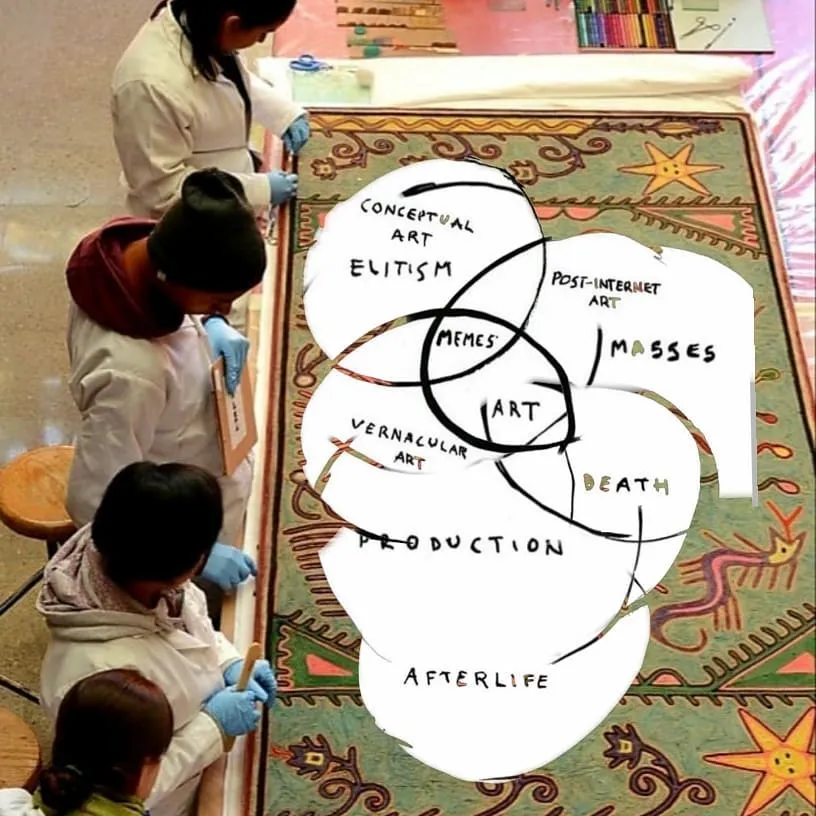 CONCEPTUAL
ART
ELITISM
POST-INTERNET
ART
MASSES
MEMES
ART
VERNACULAR
ART
DEATH
PRODUCTION
AFTERLIFE